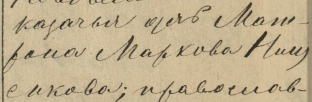 казачья дочь Мат-
рона Маркова Ниц
енкова; православ-